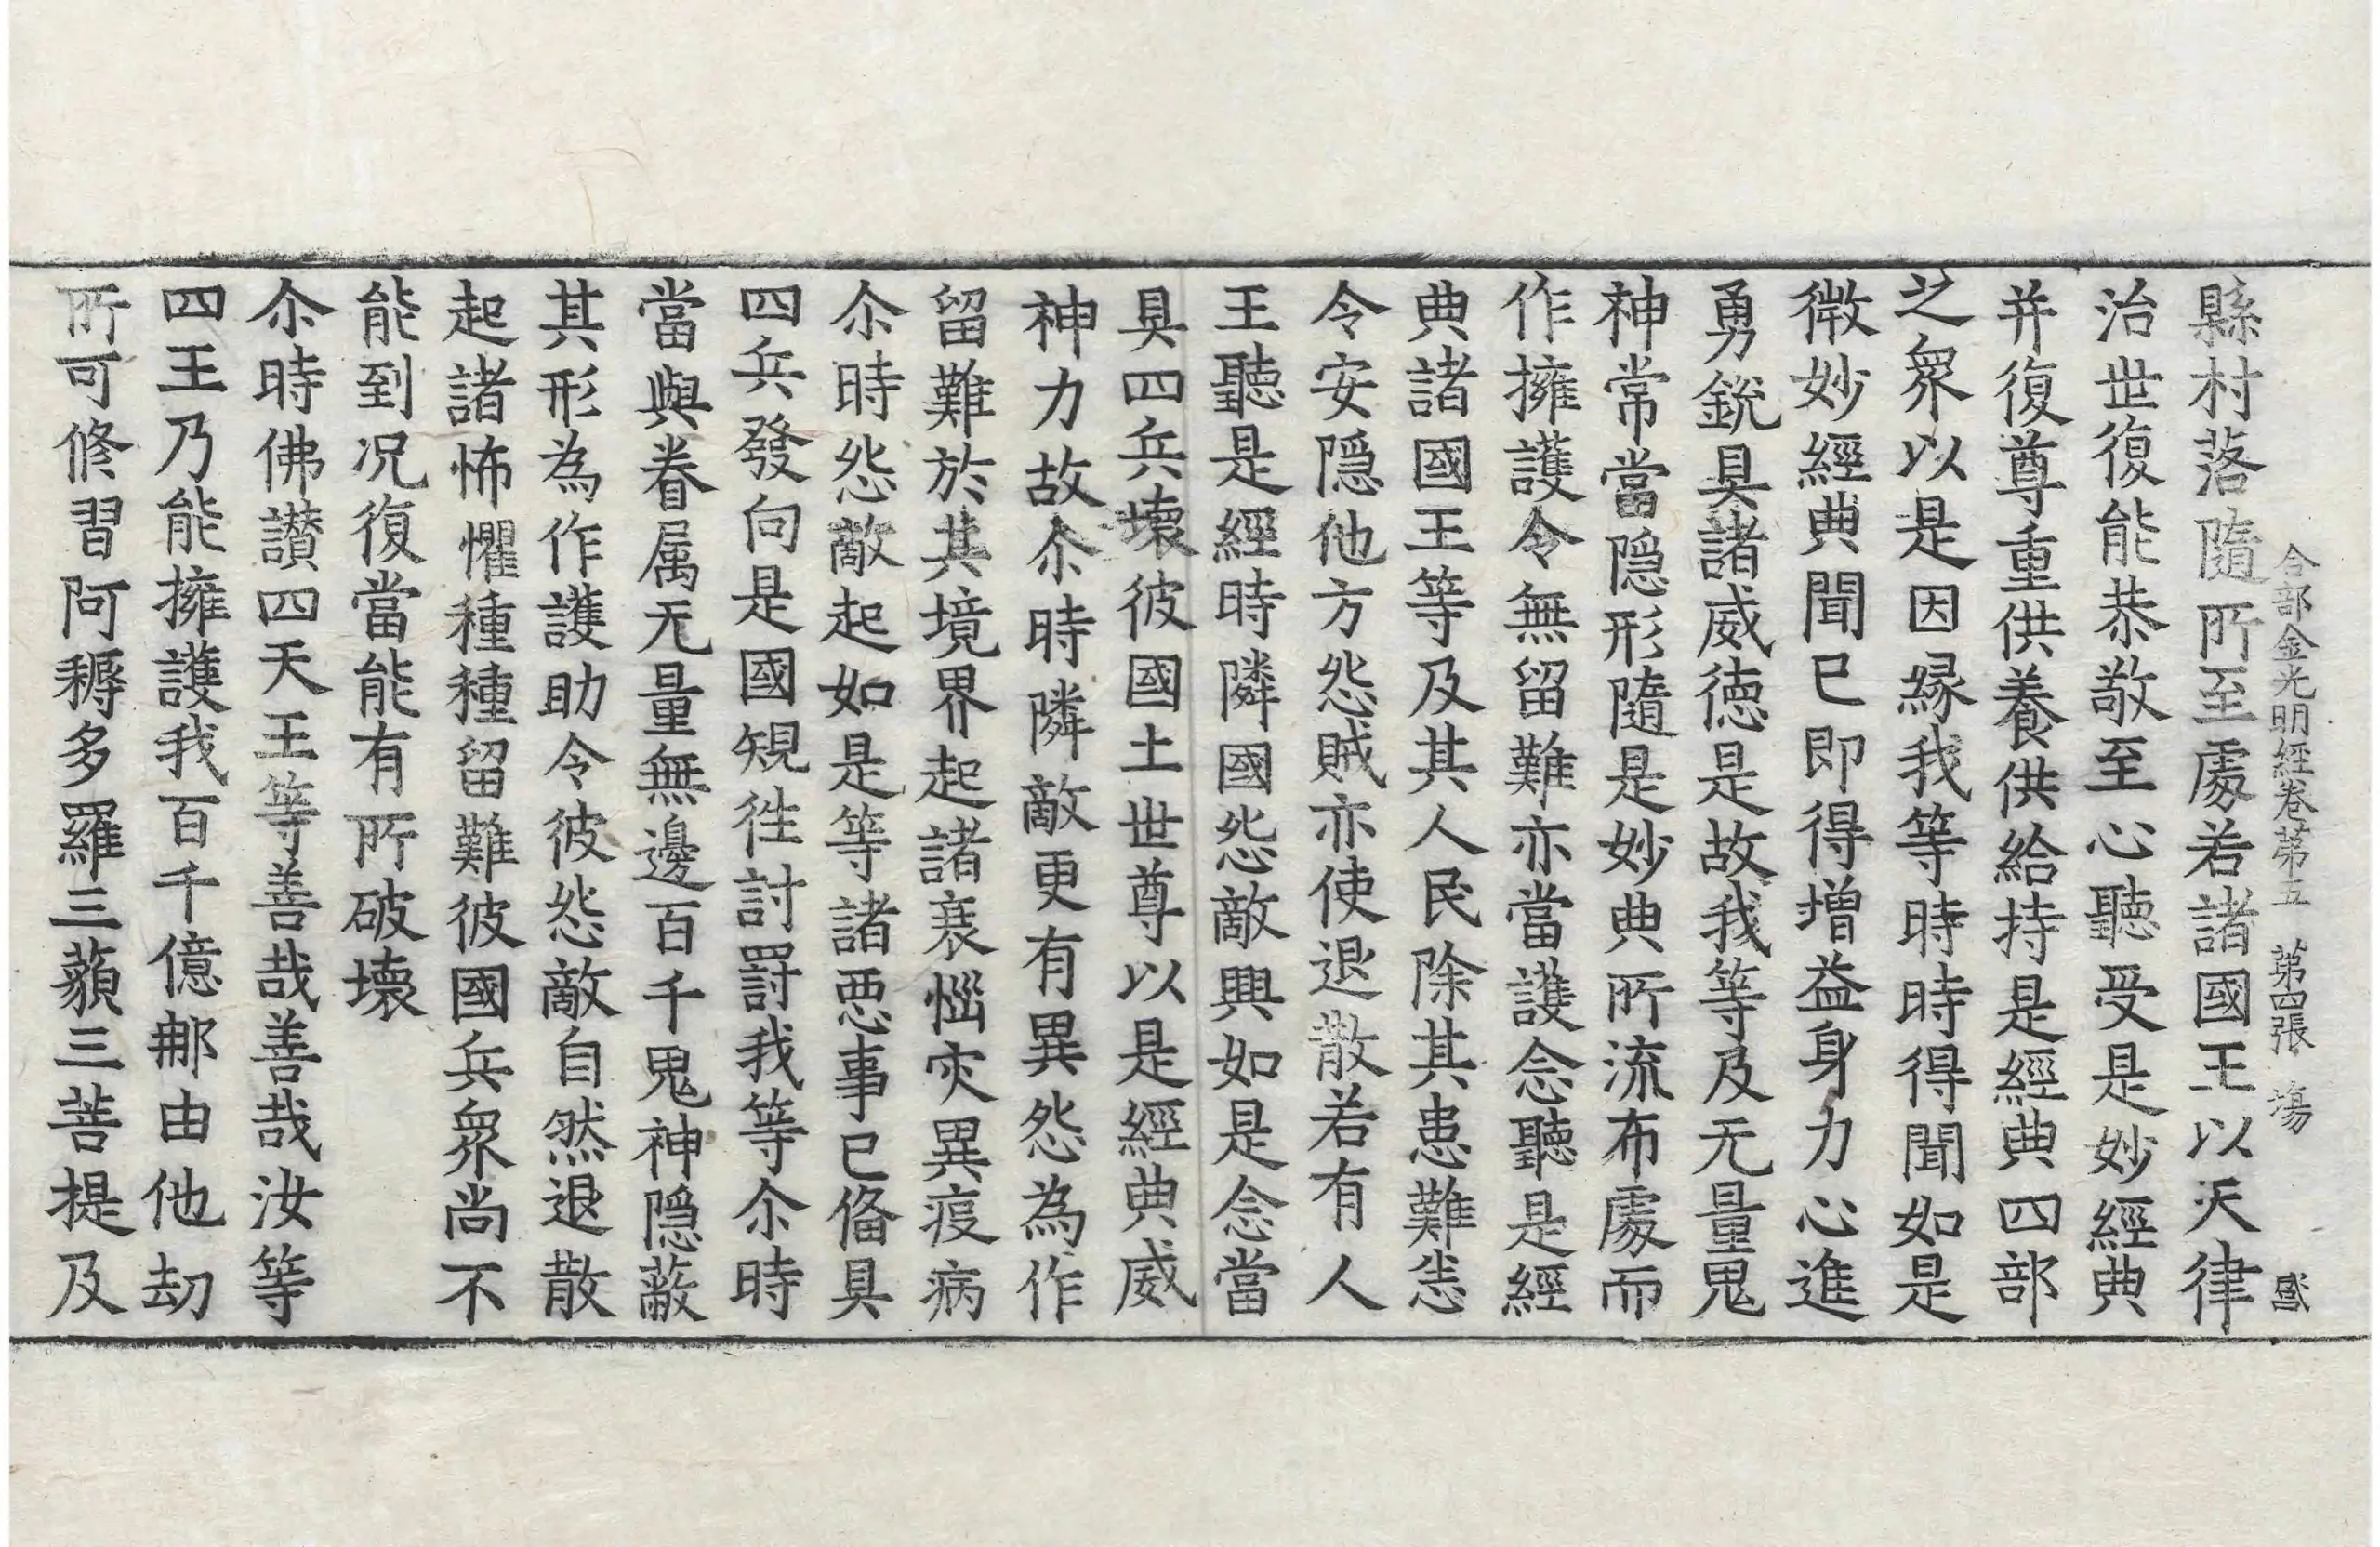 縣村落隨所至處若諸國王以天律
合部金光明經卷第五　第四張　塲
治世復能恭敬至心聽受是妙經典
并復尊重供養供給持是經典四部
之衆以是因縁我等時時得聞如是
微妙經典聞已即得增益身力心進
勇銳具諸威徳是故我等及无量鬼
神常當隠形隨是妙典所流布處而
作擁護令無留難亦當護念聽是經
典諸國王等及其人民除其患難悉
令安隠他方怨賊亦使退散若有人
王聽是經時隣國怨敵興如是念當
具四兵壞彼國土世尊以是經典威
神力故尒時隣敵更有異怨為作
留難於其境界起諸衰惱灾異疫病
尒時怨敵起如是等諸惡事已俻具
四兵發向是國規徃討罰我等尒時
當與眷属无量無邊百千鬼神隠蔽
其形為作護助令彼怨敵自然退散
起諸怖懼種種留難彼國兵衆尚不
能到况復當能有所破壞
尒時佛讃四天王等善哉善哉汝等
四王乃能擁護我百千億那由他劫
所可修習阿耨多羅三藐三菩提及